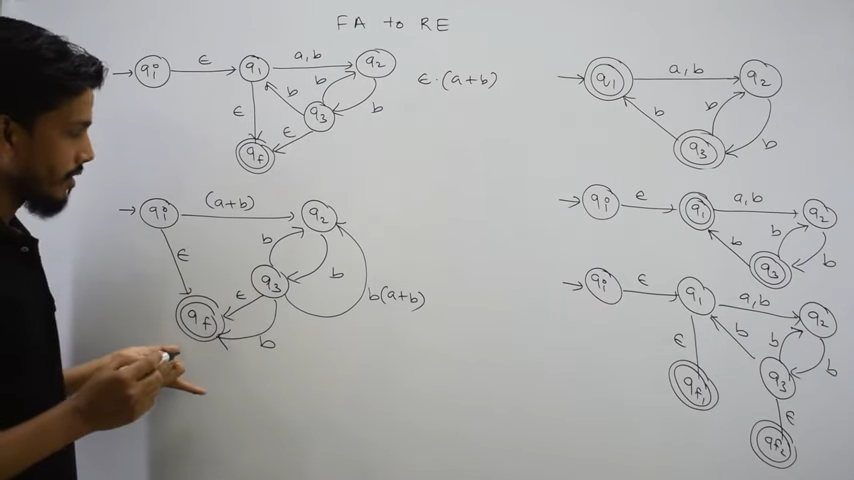 FA to RE
qi ε q1 a,b q2
ε b b b
q3
ε
qf
ε·(a+b)
qi (a+b) q2
ε b b
q3
ε b(a+b)
qf
b
q1 a,b q2
b b b
q3
qi ε q1 a,b q2
b b b
q3
qi ε q1 a,b q2
ε b b b
q3
qf1 ε
qf2